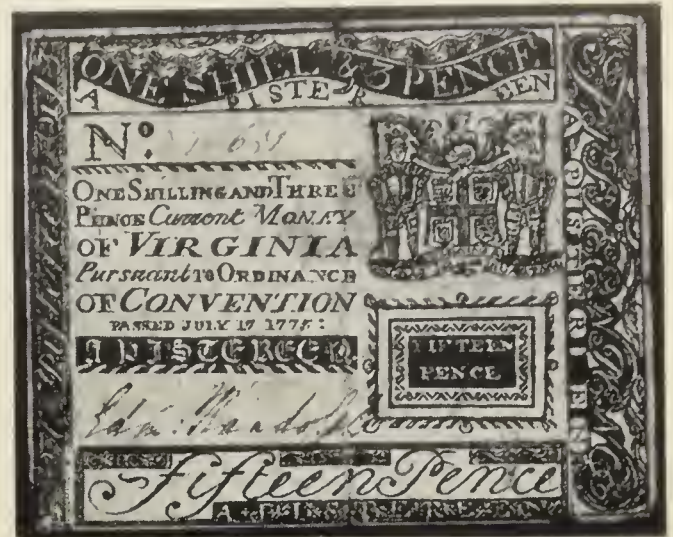 ONE SHILL & 3 PENCE
A PISTEREEN
No.
ONE SHILLING AND THREE
PENCE Current MONEY
OF VIRGINIA
Pursuant TO ORDINANCE
OF CONVENTION
PASSED JULY 17 1775:
A PISTEREEN.
FIFTEEN
PENCE
Fifteen Pence
A PISTEREEN
A PISTEREEN